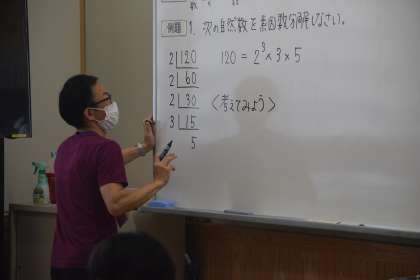 例題 1. 次の自然数を素因数分解しなさい。
2 120
2 60
2 30
3 15
5
120 = 2³ × 3 × 5
〈考えてみよう〉